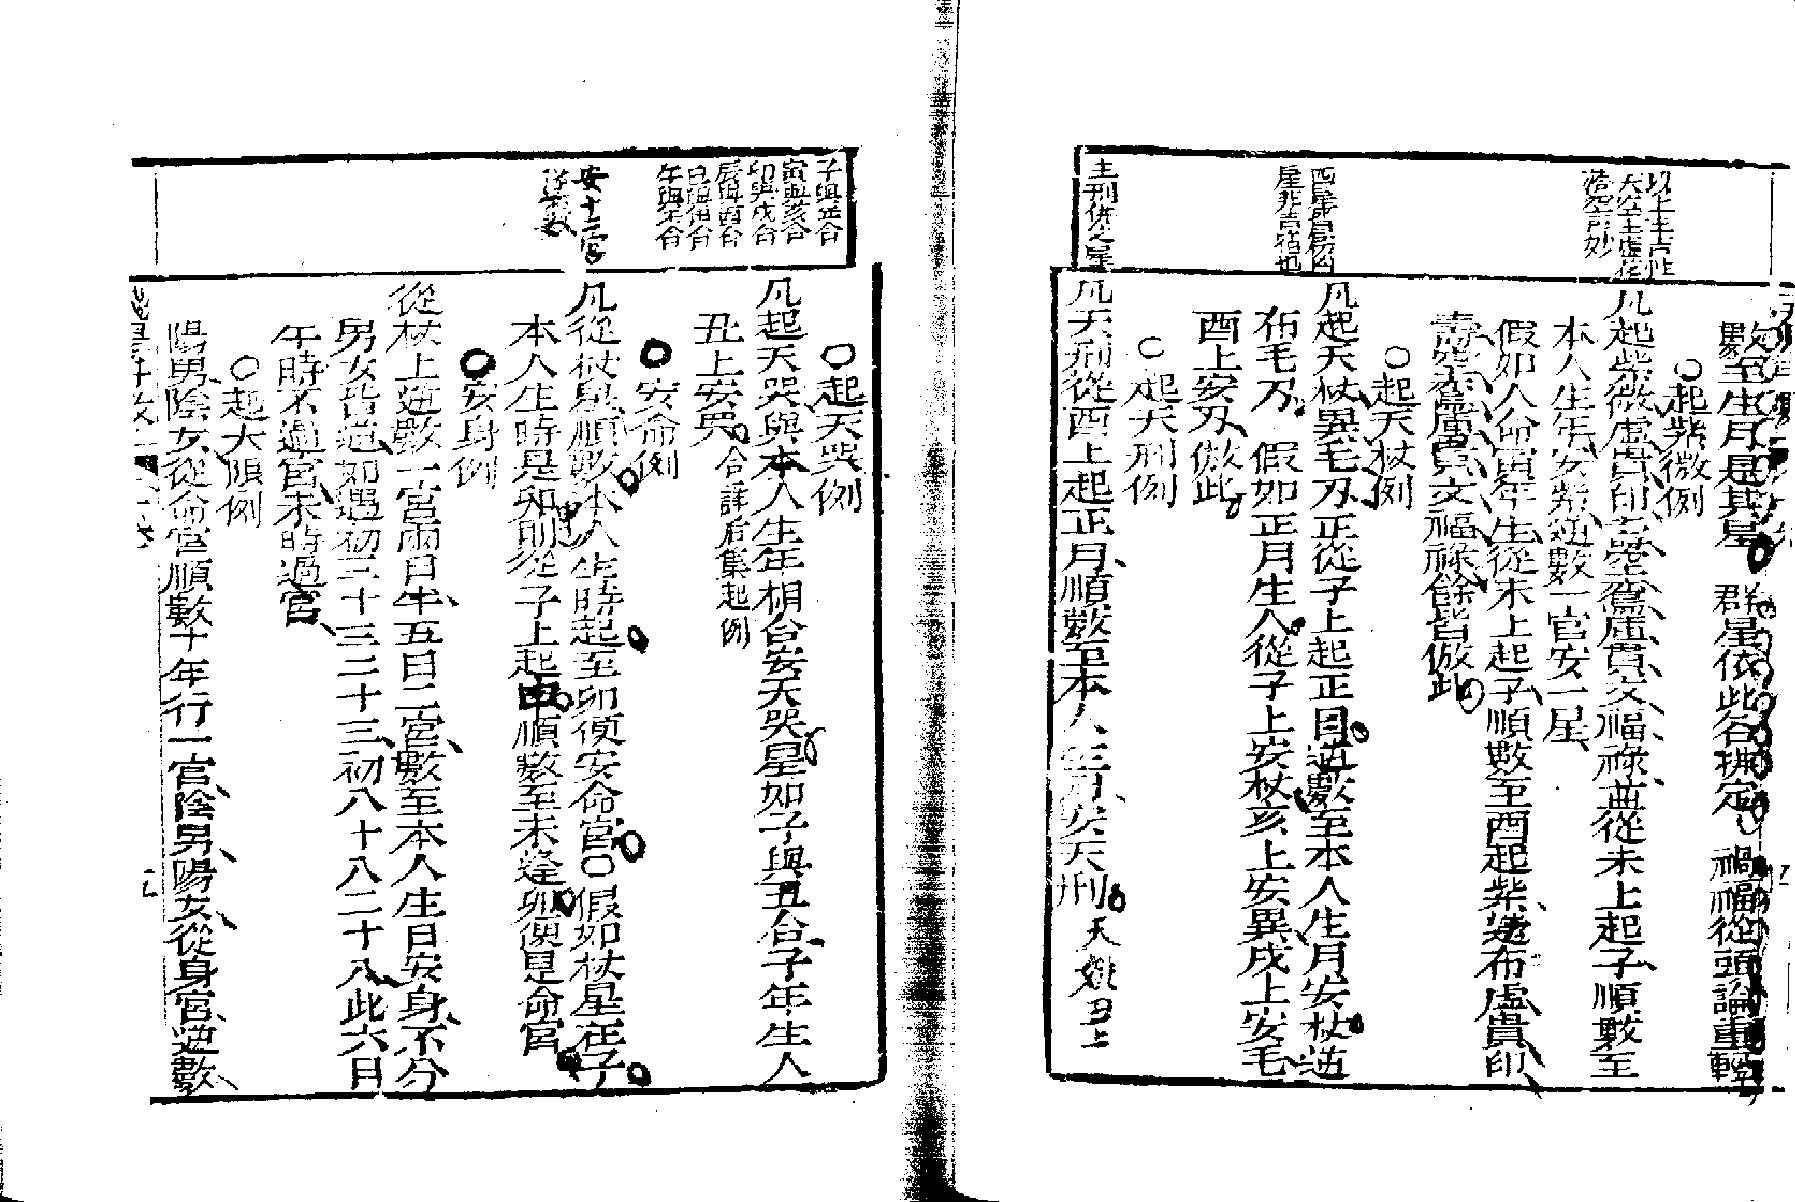 數至生月是其星 群星依此各排定 禍福從頭論重輕
〇起紫微例
凡起紫微虛貴印壽空鸞庫貫文福祿並從未上起子順數至
本人生年安紫逆數一宮安一星
假如人命酉年生從未上起子順數至酉起紫逆布虛貴印
壽空鸞庫貫文福祿餘皆倣此
〇起天杖例
凡起天杖異毛刃正從子上起正月逆數至本人生月安杖逆
布毛刃 假如正月生人從子上安杖亥上安異戌上安毛
酉上安刃倣此
〇起天刑例
凡天刑從酉上起正月順數至本人生月安天刑 天姚丑上
主刑佟之星
〇起天哭例
凡起天哭與本人生年相合安天哭星如子與丑合子年生人
丑上安哭 合詳后集起例
〇安命例
凡從杖星順數本人生時起至卯便安命宮〇假如杖星在子
本人生時是卯則從子上起申順數至未逢卯便是命宮
〇安身例
從杖上逆數一宮兩日半五日二宮數至本人生日安身不分
男女皆逆如遇初三十三二十三初八十八二十八此六日
午時不過宮未時過宮
〇起大限例
陽男陰女從命宮順數十年行一宮陰男陽女從身宮逆數
子與丑合
寅與亥合
卯與戌合
辰與酉合
巳與申合
午與未合
安十二宮